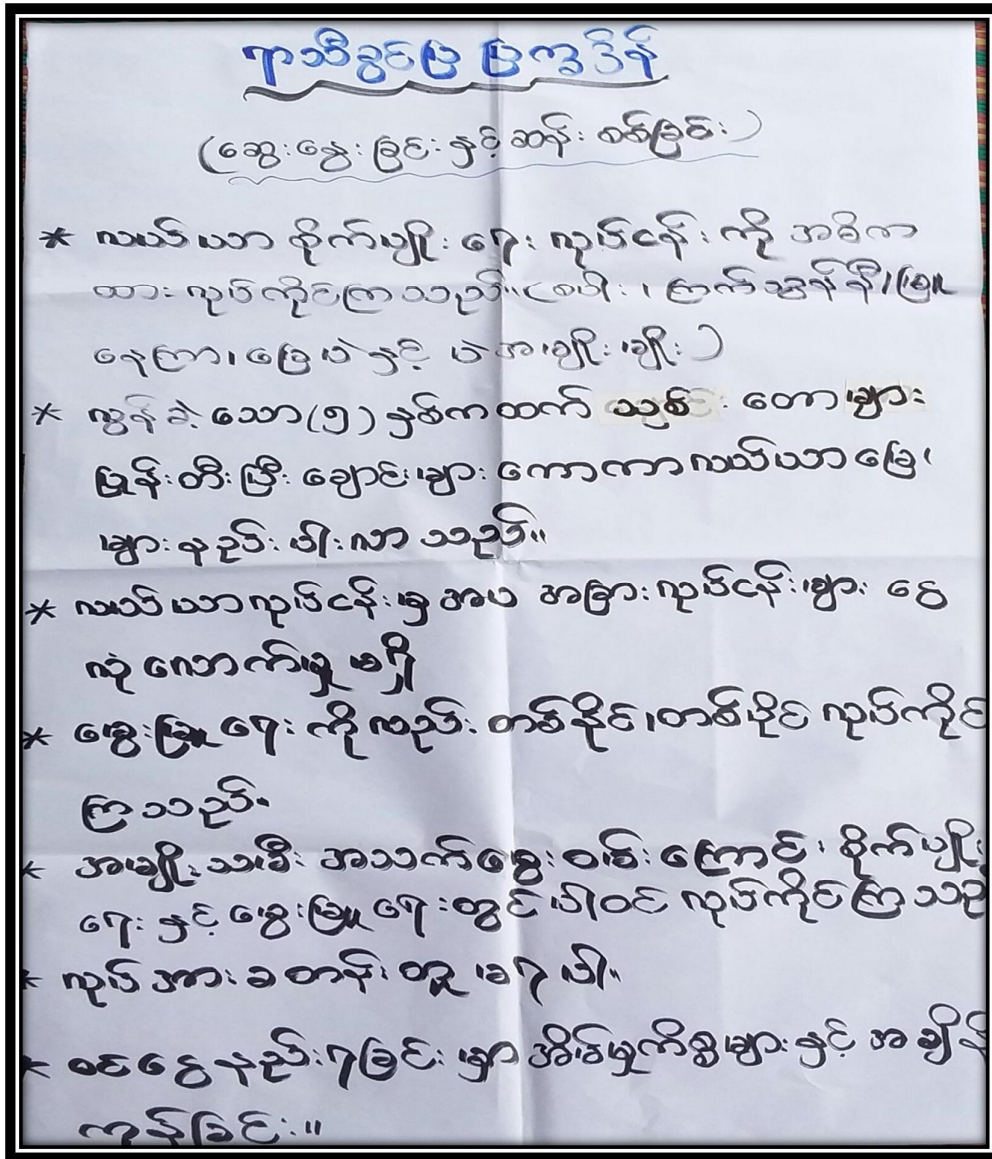 ရာသီခွင်ပြ ပြက္ခဒိန်
(ဆွေးနွေးခြင်းနှင့်ဆန်းစစ်ခြင်း)
* လယ်ယာ စိုက်ပျိုးရေး လုပ်ငန်းကို အဓိက
ထားလုပ်ကိုင်ကြသည်။ (စပါး၊ ကြက်သွန်နီ၊ မြေ
နေကြာ၊ မြေပဲနှင့် ပဲအမျိုးမျိုး)
* လွန်ခဲ့သော (၅) နှစ်ကထက် သစ် တောများ
ပြုန်းတီးပြီး ချောင်းများကောကာလယ်ယာမြေ
များနည်းပါးလာသည်။
* လယ်ယာလုပ်ငန်းမှအပ အခြားလုပ်ငန်းများ ငွေ
လုံလောက်မှုမရှိ
* မွေးမြူရေးကိုလည်း တစ်နိုင်၊တစ်ပိုင် လုပ်ကိုင်
ကြသည်။
* အမျိုးသမီး အသက်မွေးဝမ်းကြောင်း စိုက်ပျိုး
ရေးနှင့် မွေးမြူရေးတွင် ပါဝင် လုပ်ကိုင်ကြသည်
* လုပ်အားခတန်းတူ မရပါ။
* ဝင်ငွေနည်းရခြင်းမှာ အိမ်မှုကိစ္စများနှင့် အချိန်
ကုန်ခြင်း။